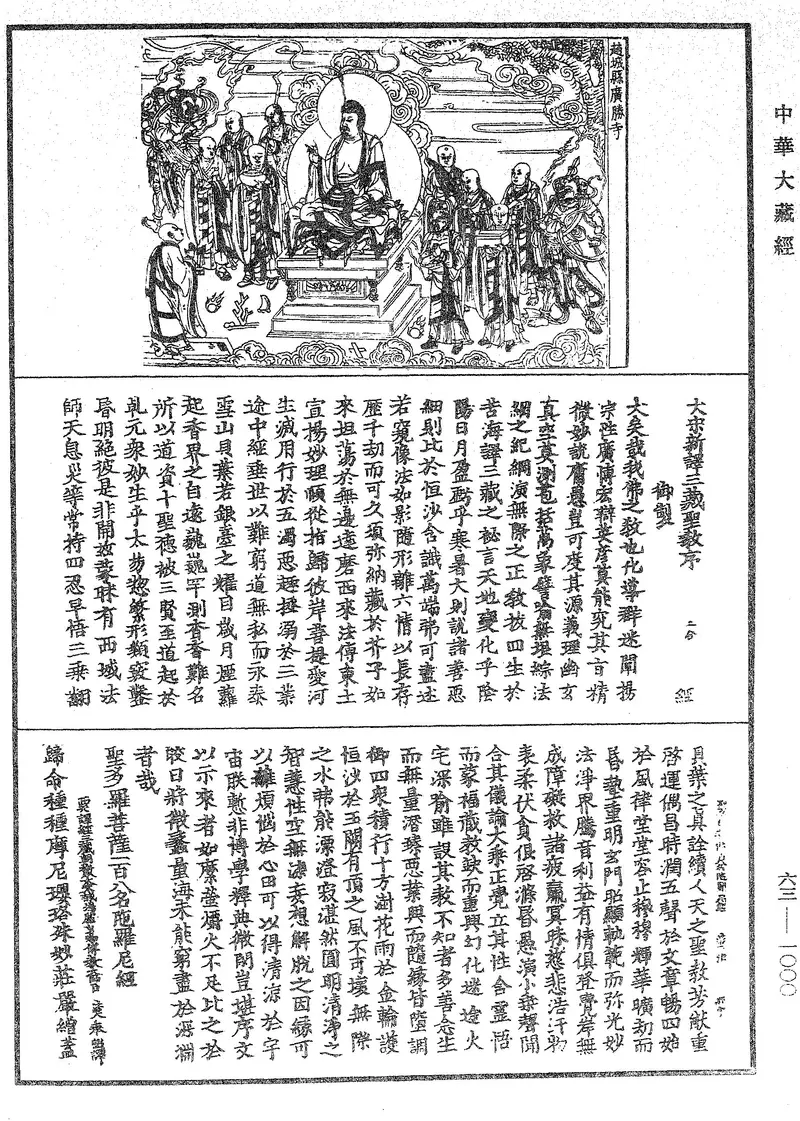 中華大藏經
趙城縣廣勝寺
大宋新譯三藏聖教序
御製
大矣哉我佛之教也化導群迷闡揚
宗性廣博宏辯英彥莫能究其旨精
微妙說庸愚豈可度其源義理幽玄
真空莫測包括萬象譬喻無垠綜法
網之紀綱演無際之正教拔四生於
苦海譯三藏之秘言天地變化乎陰
陽日月盈虧乎寒暑大則說諸善惡
細則比於恒沙含識萬端弗可盡述
若窺像法如影隨形離六情以長存
歷千劫而可久須弥納藏於芥子如
來坦蕩於無邊達磨西來法傳東土
宣揚妙理順從指歸彼岸菩提愛河
生滅用行於五濁惡趣拯溺於三業
途中經垂世以難窮道無私而永泰
雪山貝葉若銀臺之耀目歲月煙蘿
起香界之自遠巍巍罕測杳杳難名
所以道資十聖德被三賢至道起於
乾元衆妙生乎太易惣繁形類竅鑿
昏明絕彼是非開茲蒙昧有西域法
師天息災等常持四忍早悟三乘翻
六三—一〇〇〇
貝葉之真詮續人天之聖教芳猷重
啓運偶昌時潤五聲於文章暢四始
於風律堂堂容止穆穆輝華曠劫而
昏墊重明玄門昭顯軌範而弥光妙
法淨界騰音利益有情俱登覺岸無
成障礙救諸疲羸冥昧慈悲浩汗物
表柔伏貪佷啓滌昏愚演小乘聲聞
合其儀論大乘正覺立其性含靈悟
而蒙福藏教缺而重興幻化迷途火
宅深喻雖設其教不知者多善念生
而無量潛臻惡業興而隨緣皆墮調
御四衆積行十方澍花雨於金輪護
恒沙於玉闕有頂之風不可壞無際
之水弗能漂澄寂湛然圓明清淨之
智慧性空無染妄想解脫之因緣可
以離煩惱於心田可以得清涼於宇
宙朕慙非博學釋典微閑豈堪序文
以示來者如縻螢爝火不足比之於
皎日將微蠡量海未能窮盡於深淵
者哉
聖多羅菩薩一百八名陁羅尼經
歸命種種摩尼瓔珞殊妙莊嚴繒蓋